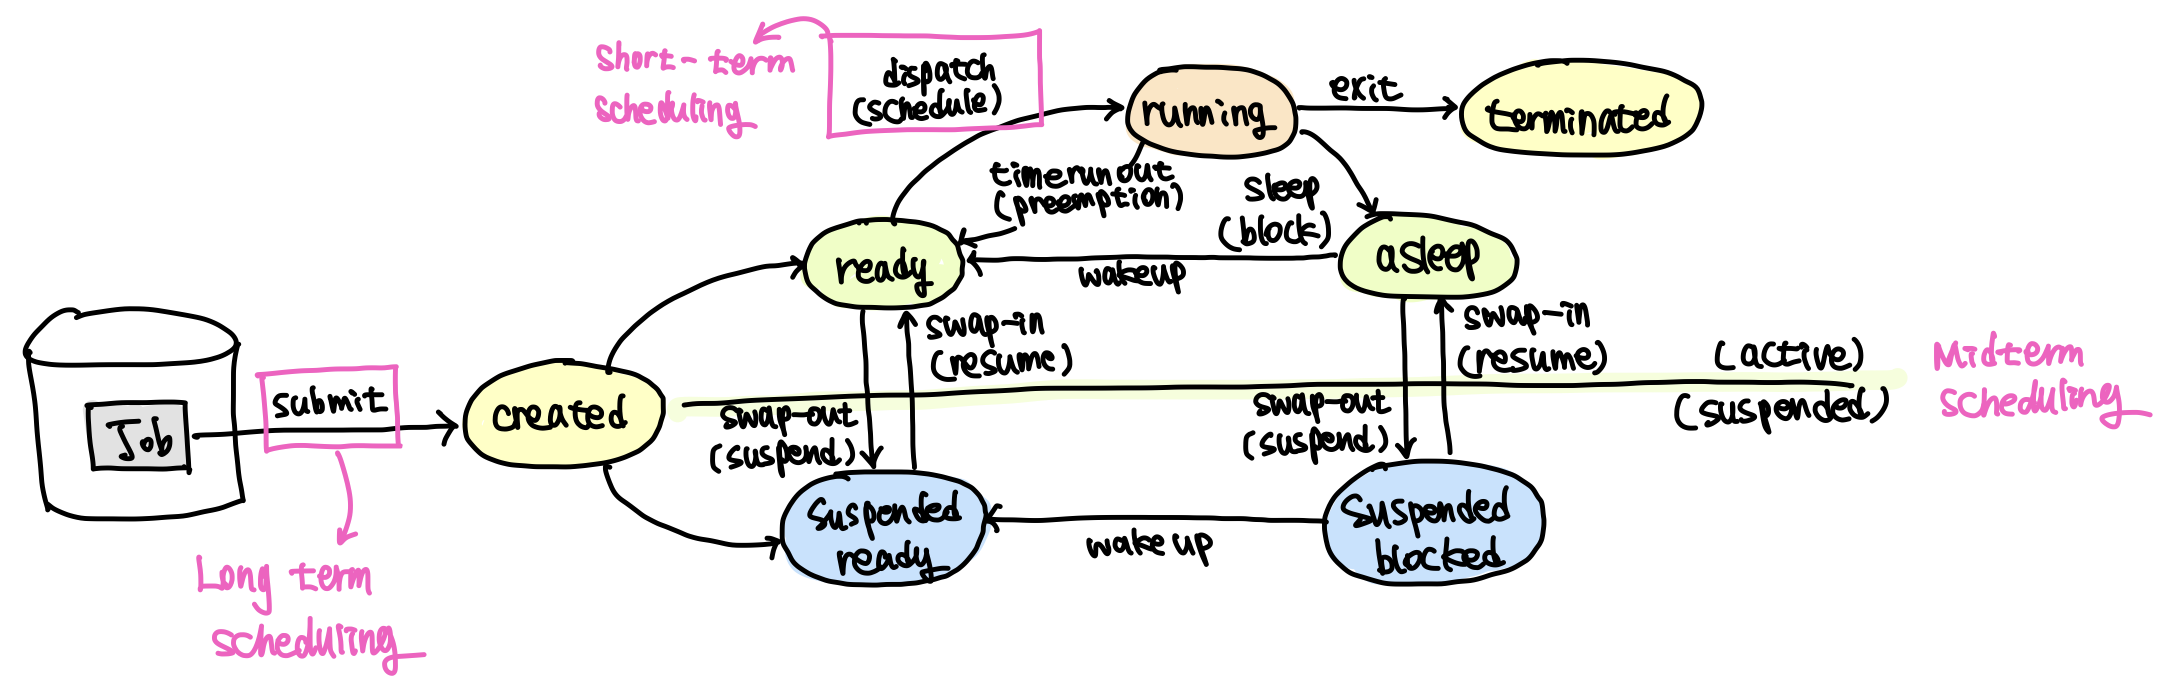 short-term
scheduling
dispatch
(schedule)
running
exit
terminated
timerunout
(preemption)
sleep
(block)
ready
wakeup
asleep
swap-in
(resume)
swap-in
(resume)
(active)
Midterm
scheduling
Job
submit
created
swap-out
(suspend)
swap-out
(suspend)
(suspended)
suspended
ready
wake up
suspended
blocked
Long term
scheduling